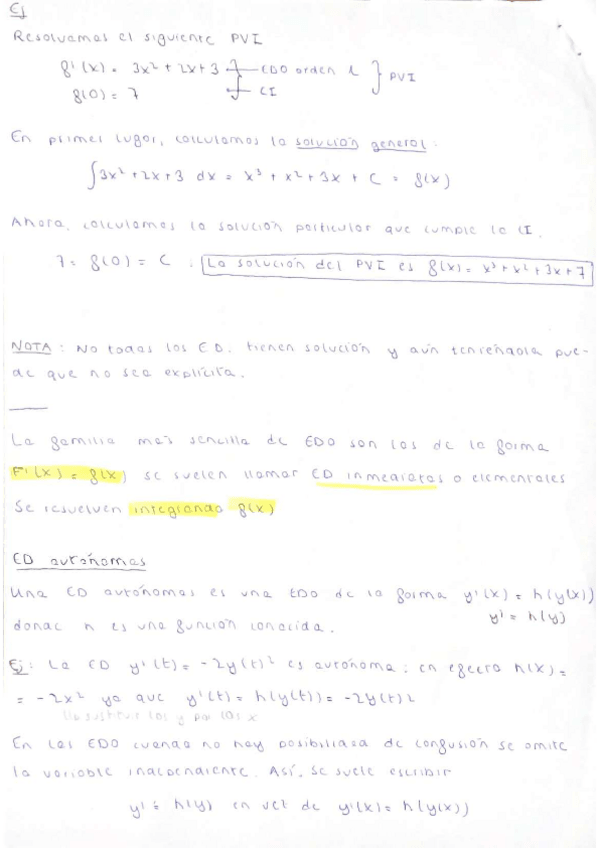 Ej
Resolvamos el siguiente PVI
f'(x) = 3x² + 2x + 3 EDO orden 1 } PVI
f(0) = 7 CI
En primer lugar, calculamos la solución general:
∫3x² + 2x + 3 dx = x³ + x² + 3x + C = f(x)
Ahora, calculamos la solución particular que cumple la CI.
7 = f(0) = C. La solución del PVI es f(x) = x³ + x² + 3x + 7
NOTA: No todas los ED. tienen solución y aún teniéndola pue-
de que no sea explícita.
La familia más sencilla de EDO son las de la forma
F'(x) = f(x) se suelen llamar ED inmediatas o elementales
Se resuelven integrando f(x)
ED autónomas
Una ED autónomas es una EDO de la forma y'(x) = h(y(x))
y' = h(y)
donde h es una función conocida.
Ej: La ED y'(t) = -2y(t)² es autónoma; en efecto h(x) =
= -2x² ya que y'(t) = h(y(t)) = -2y(t)²
sustituir las y por las x
En las EDO cuando no hay posibilidad de confusión se omite
la variable independiente. Así, se suele escribir
y' = h(y) en vez de y'(x) = h(y(x))